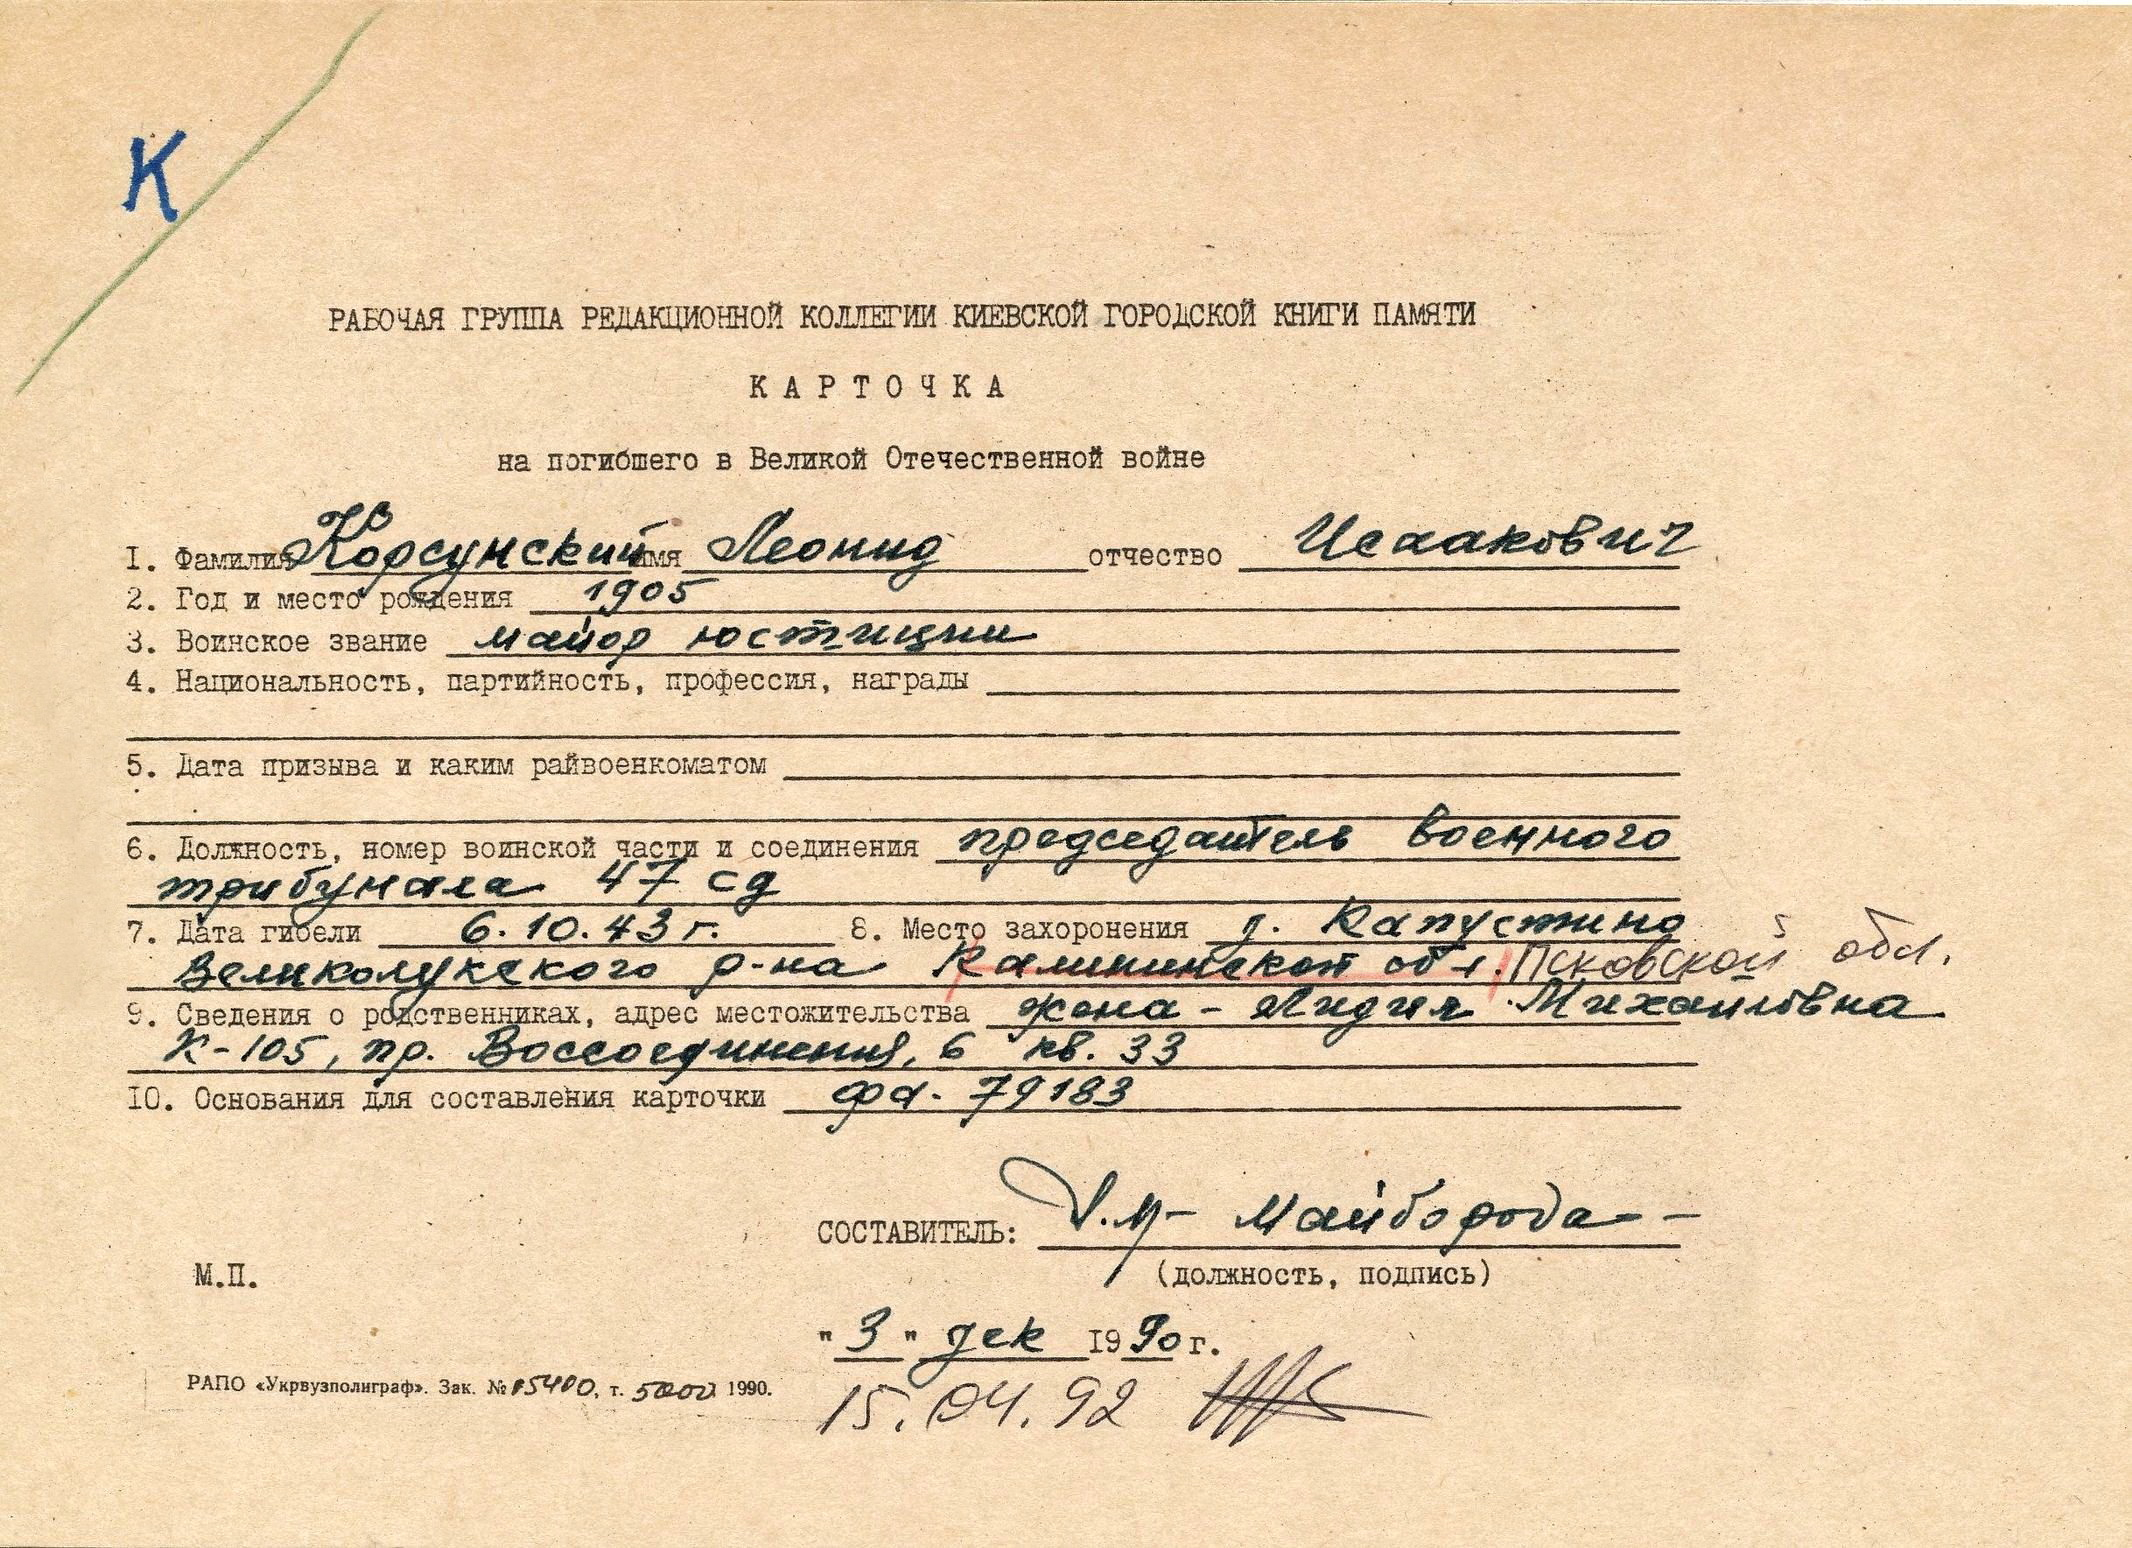 К
РАБОЧАЯ ГРУППА РЕДАКЦИОННОЙ КОЛЛЕГИИ КИЕВСКОЙ ГОРОДСКОЙ КНИГИ ПАМЯТИ
КАРТОЧКА
на погибшего в Великой Отечественной войне
1. Фамилия Корсунский имя Леонид отчество Исаакович
2. Год и место рождения 1905
3. Воинское звание майор юстиции
4. Национальность, партийность, профессия, награды
5. Дата призыва и каким райвоенкоматом
6. Должность, номер воинской части и соединения председатель военного
трибунала 47 сд
7. Дата гибели 6.10.43 г. 8. Место захоронения д. Капустино
Великолукского р-на Калининской обл. Псковской обл.
9. Сведения о родственниках, адрес местожительства жена - Лидия Михайловна
К-105, пр. Воссоединения, 6 кв. 33
10. Основания для составления карточки фд. 79183
СОСТАВИТЕЛЬ: Майборода
М.П. (должность, подпись)
"3" дек 1990 г.
РАПО «Укрвузполиграф». Зак. № 15400, т. 5000 1990.
15.04.92